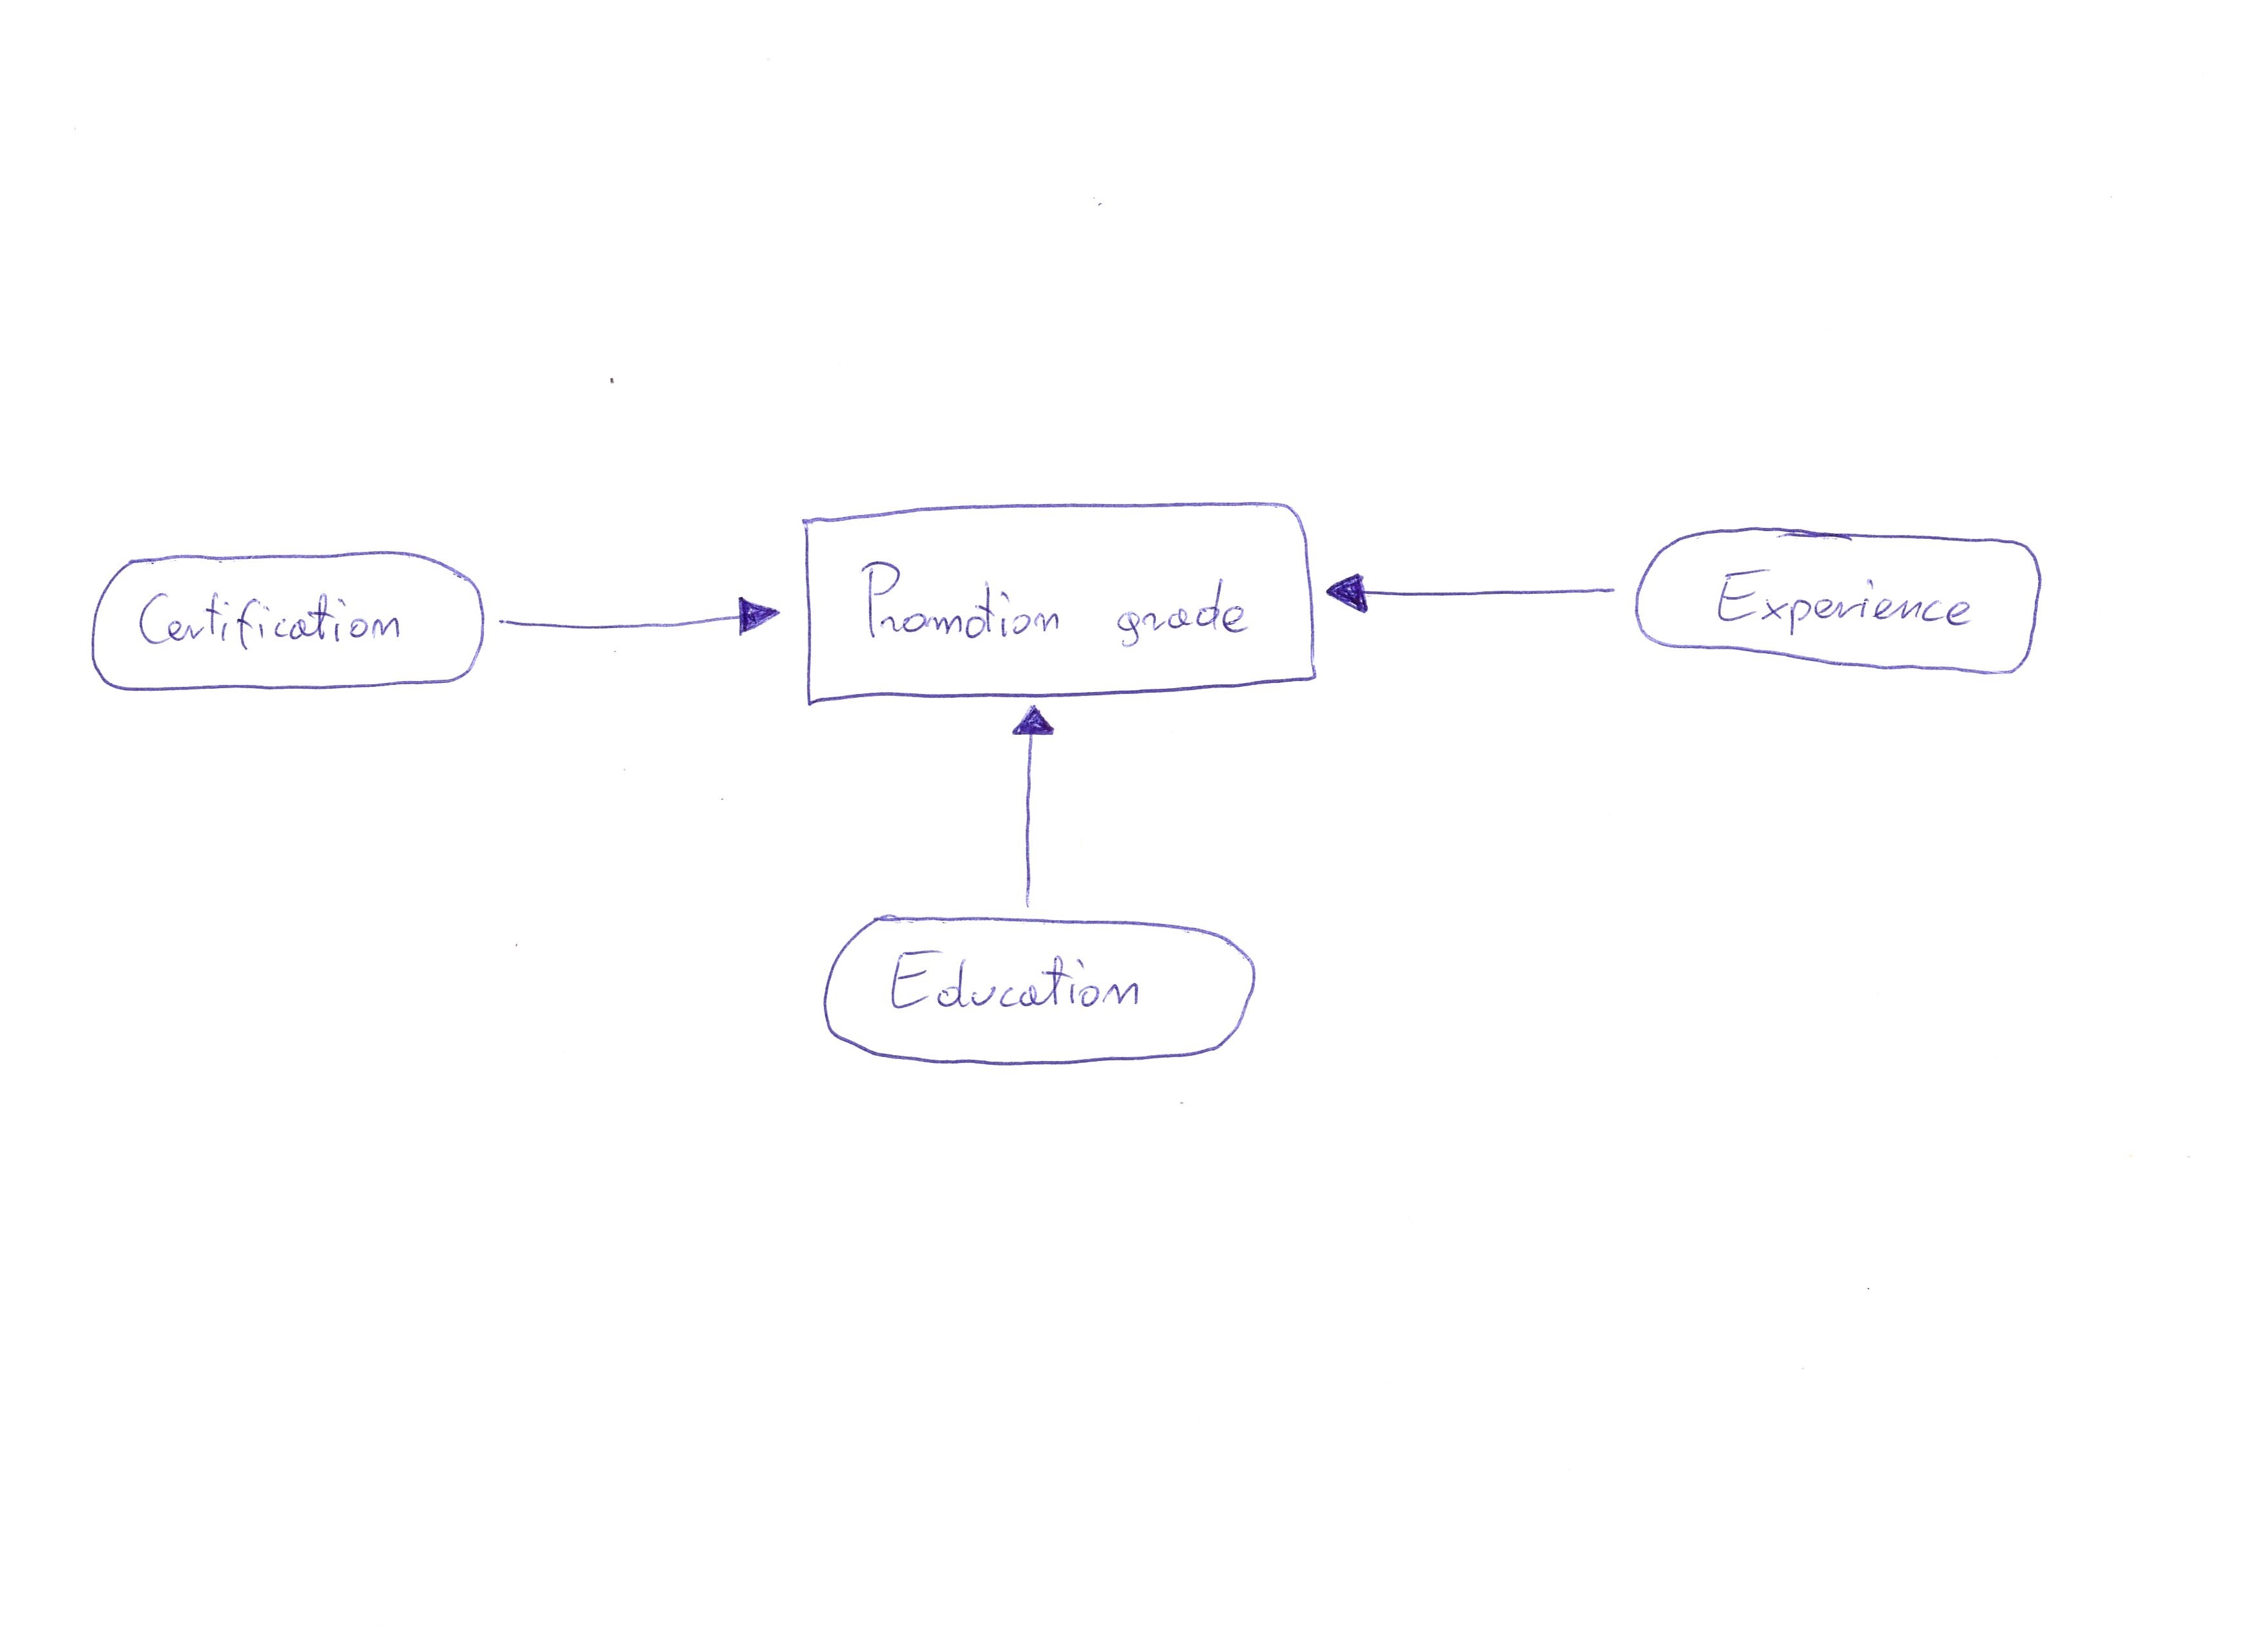 Certification
Promotion grade
Experience
Education